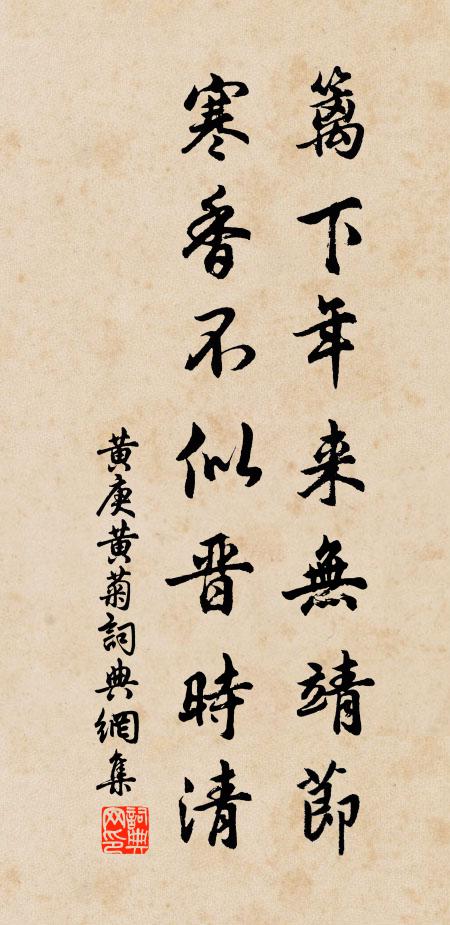 籬下年来無靖節
寒香不似晋時清
黄庚黄菊詞典網集
詞典网印